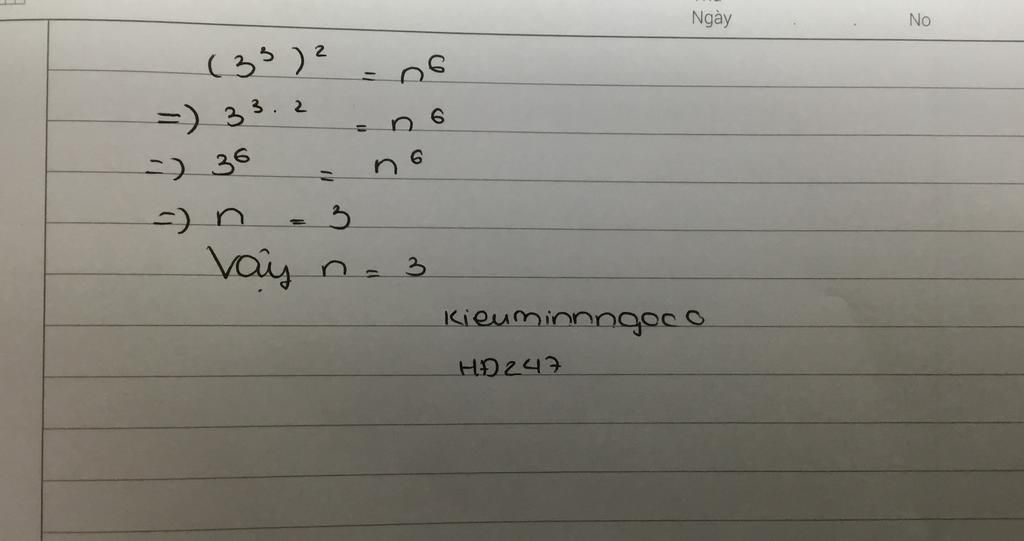 Ngày . . No
(3³)² = n⁶
=) 3³·² = n⁶
=) 3⁶ = n⁶
=) n = 3
Vậy n = 3
kieuminnngoc0
HĐ247